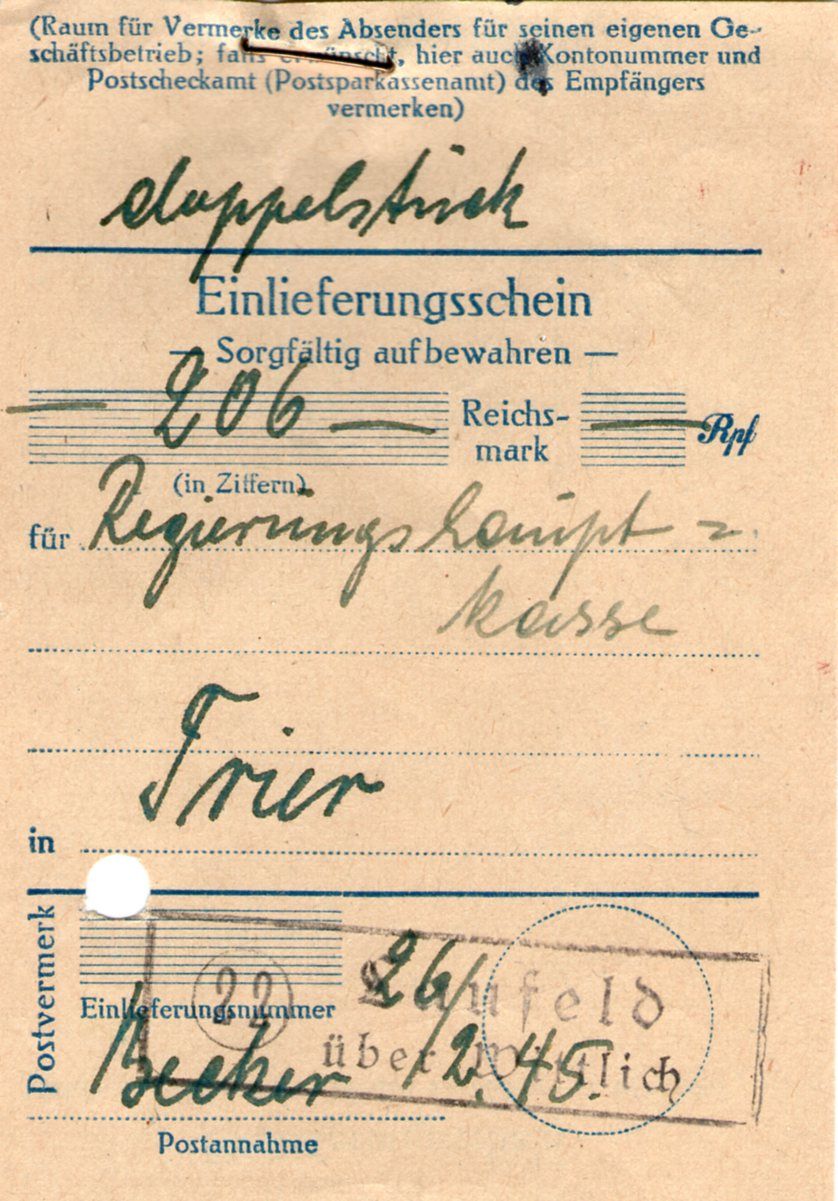 (Raum für Vermerke des Absenders für seinen eigenen Ge-
schäftsbetrieb; falls erwünscht, hier auch Kontonummer und
Postscheckamt (Postsparkassenamt) des Empfängers
vermerken)
doppelstück
Einlieferungsschein
— Sorgfältig aufbewahren —
— 206 — Reichs-
mark — Rpf
(in Ziffern)
für Regierungshaupt =
kasse
Trier
in
Postvermerk
22 Laufeld
über Wittlich
26/2.45.
Einlieferungsnummer
Becker
Postannahme